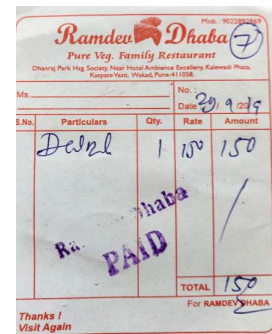 Mob. : 9022892969
Ramdev Dhaba
7
Pure Veg. Family Restaurant
Dhanraj Park Hsg Society, Near Hotel Ambience Excellency, Kalewadi Phata,
Kaspate Vasti, Wakad, Pune-411058.
Ms.
No. :
Date 29/9/2019
S.No. Particulars Qty. Rate Amount
1 150 150
Ra Dhaba
PAID
TOTAL 150
For RAMDEV DHABA
Thanks !
Visit Again